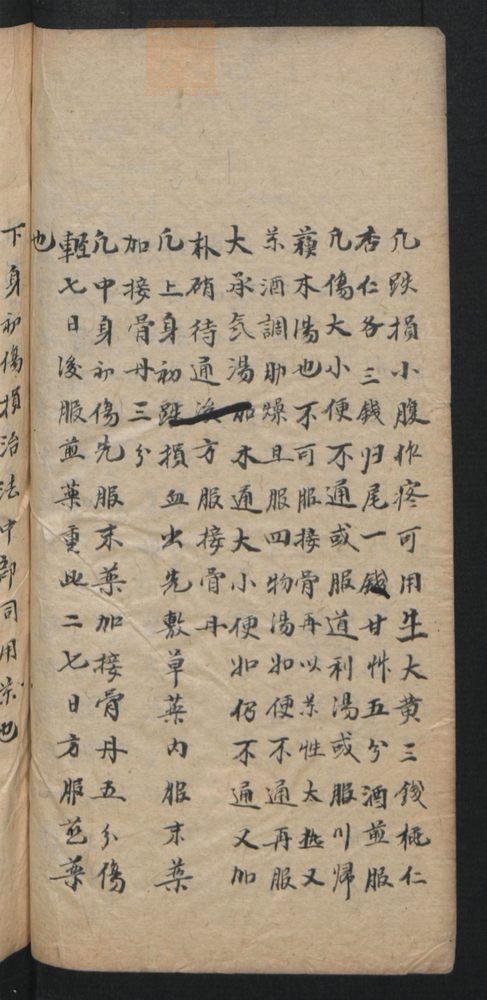 凢跌損小腹作疼可用生大黄三錢桃仁
杏仁各三錢归尾一錢甘艸五分酒煎服
凢傷大小便不通或服道利湯或服川歸
蘓木湯也不可服接骨再以茶性太热又
茶酒調助燥且服四物湯如便不通再服
大承氣湯加木通大小便如仍不通又加
朴硝待通後方服接骨丹
凢上身初跌損血出先敷草药内服末药
加接骨丹三分
凢中身初傷先服末药加接骨丹五分傷
輕七日後服煎药重此二七日方服煎药
也
下身初傷損治法中部同用
也